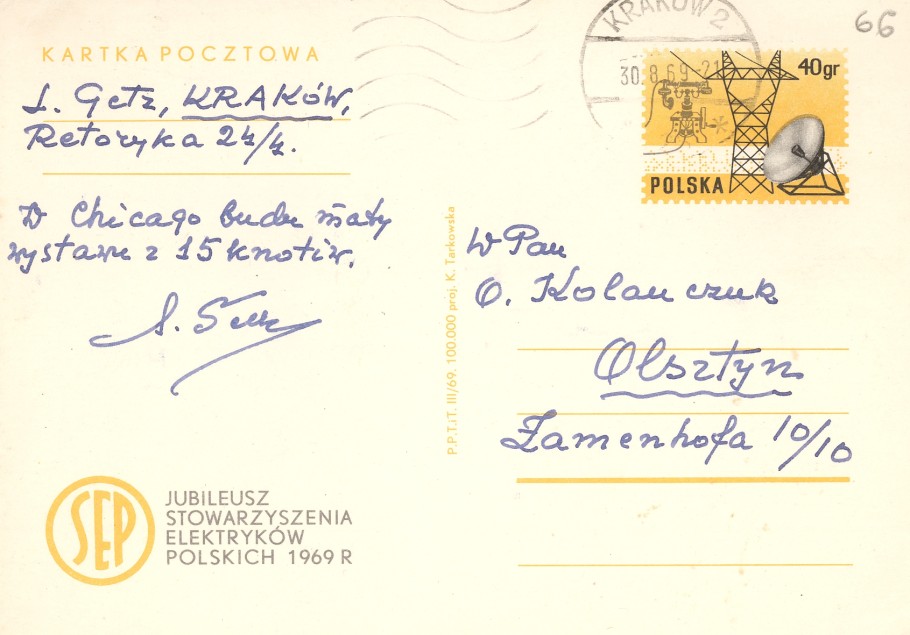 KARTKA POCZTOWA
L. Getz, KRAKÓW,
Retoryka 24/4.
W Chicago budu maty
wystawu z 15 knotiw.
KRAKÓW 2
30.8.69-21
66
40gr
POLSKA
P.P.T.iT. III/69. 100.000 proj. K. Tarkowska
WPan
O. Kolanczuk
Olsztyn
Zamenhofa 10/10
SEP
JUBILEUSZ
STOWARZYSZENIA
ELEKTRYKÓW
POLSKICH 1969 R